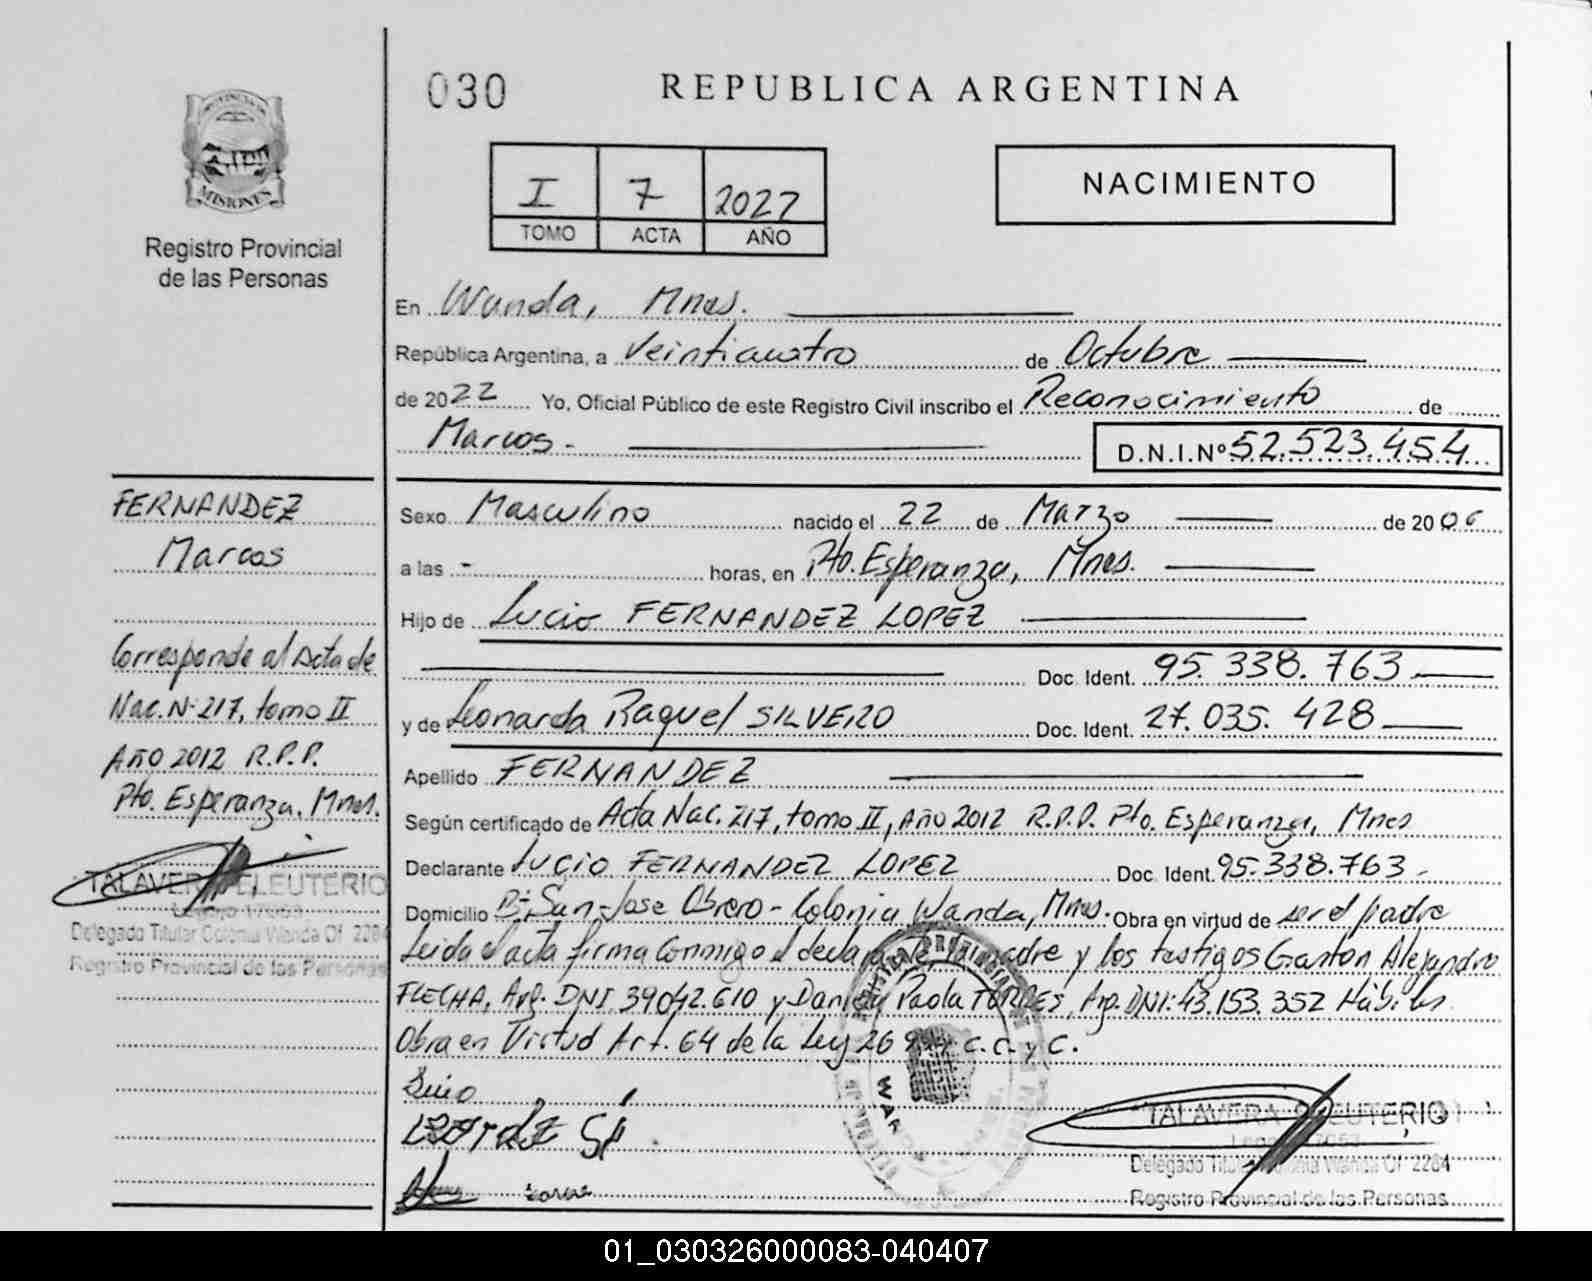 030
REPUBLICA ARGENTINA
PROVINCIA DE
MISIONES
Registro Provincial
de las Personas
I 7 2022
TOMO ACTA AÑO
NACIMIENTO
En Wanda, Mnes.
República Argentina, a Veinticuatro de Octubre
de 2022 Yo, Oficial Público de este Registro Civil inscribo el Reconocimiento de
Marcos.- D.N.I.Nº 52.523.454
FERNANDEZ
Marcos
Corresponde al Acta de
Nac. Nº 217, tomo II
Año 2012 R.P.P.
Pto. Esperanza, Mnes.
TALAVERA ELEUTERIO
Legajo 17053
Delegado Titular Colonia Wanda Of. 2284
Registro Provincial de las Personas
Sexo Masculino nacido el 22 de Marzo de 2006
a las - horas, en Pto. Esperanza, Mnes.
Hijo de Lucio FERNANDEZ LOPEZ
Doc. Ident. 95.338.763
y de Leonarda Raquel SILVERO Doc. Ident. 27.035.428
Apellido FERNANDEZ
Según certificado de Acta Nac. 217, tomo II, Año 2012 R.P.P. Pto. Esperanza, Mnes
Declarante Lucio FERNANDEZ LOPEZ Doc. Ident. 95.338.763.
Domicilio Bº San Jose Obrero - Colonia Wanda, Mnes. Obra en virtud de ser el padre
Leida el acta firma conmigo el declarante, la madre y los testigos Gaston Alejandro
FLECHA, Arg. DNI 39042.610 y Paola TORRES, Arg. DNI: 43.153.352 Hábiles.
Obra en Virtud Art. 64 de la Ley 26 C.C. y C.
WANDA
TALAVERA ELEUTERIO
Legajo 17053
Delegado Titular Colonia Wanda Of. 2284
Registro Provincial de las Personas
01_030326000083-040407